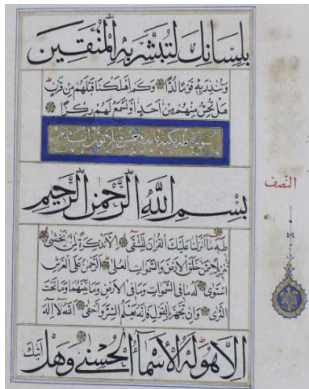 بلسانك لتبشر به المتقين
وتنذر به قوما لدا وكم اهلكنا قبلهم من قرن
هل تحس منهم من احد او تسمع لهم ركزا
سورة طه
بسم الله الرحمن الرحيم
طه ما انزلنا عليك القران لتشقى الا تذكرة لمن يخشى
تنزيلا ممن خلق الارض والسموات العلى الرحمن على العرش
استوى له ما في السموات وما في الارض وما بينهما وما تحت
الثرى وان تجهر بالقول فانه يعلم السر واخفى الله لا اله
الا هو له الاسماء الحسنى وهل اتيك
النصف